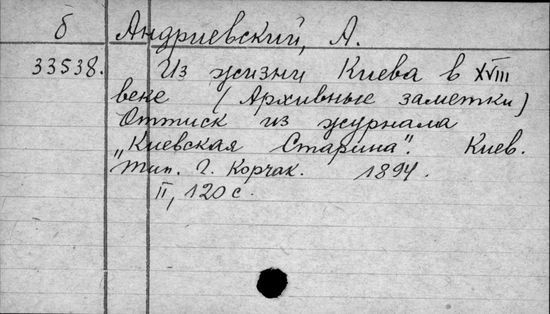 б Андриевский, А.
33538. Из жизни Киева в XVIII
веке (Архивные заметки)
Оттиск из журнала
„Киевская Старина". Киев.
Тип. Г. Корчак. 1894.
II, 120 с.